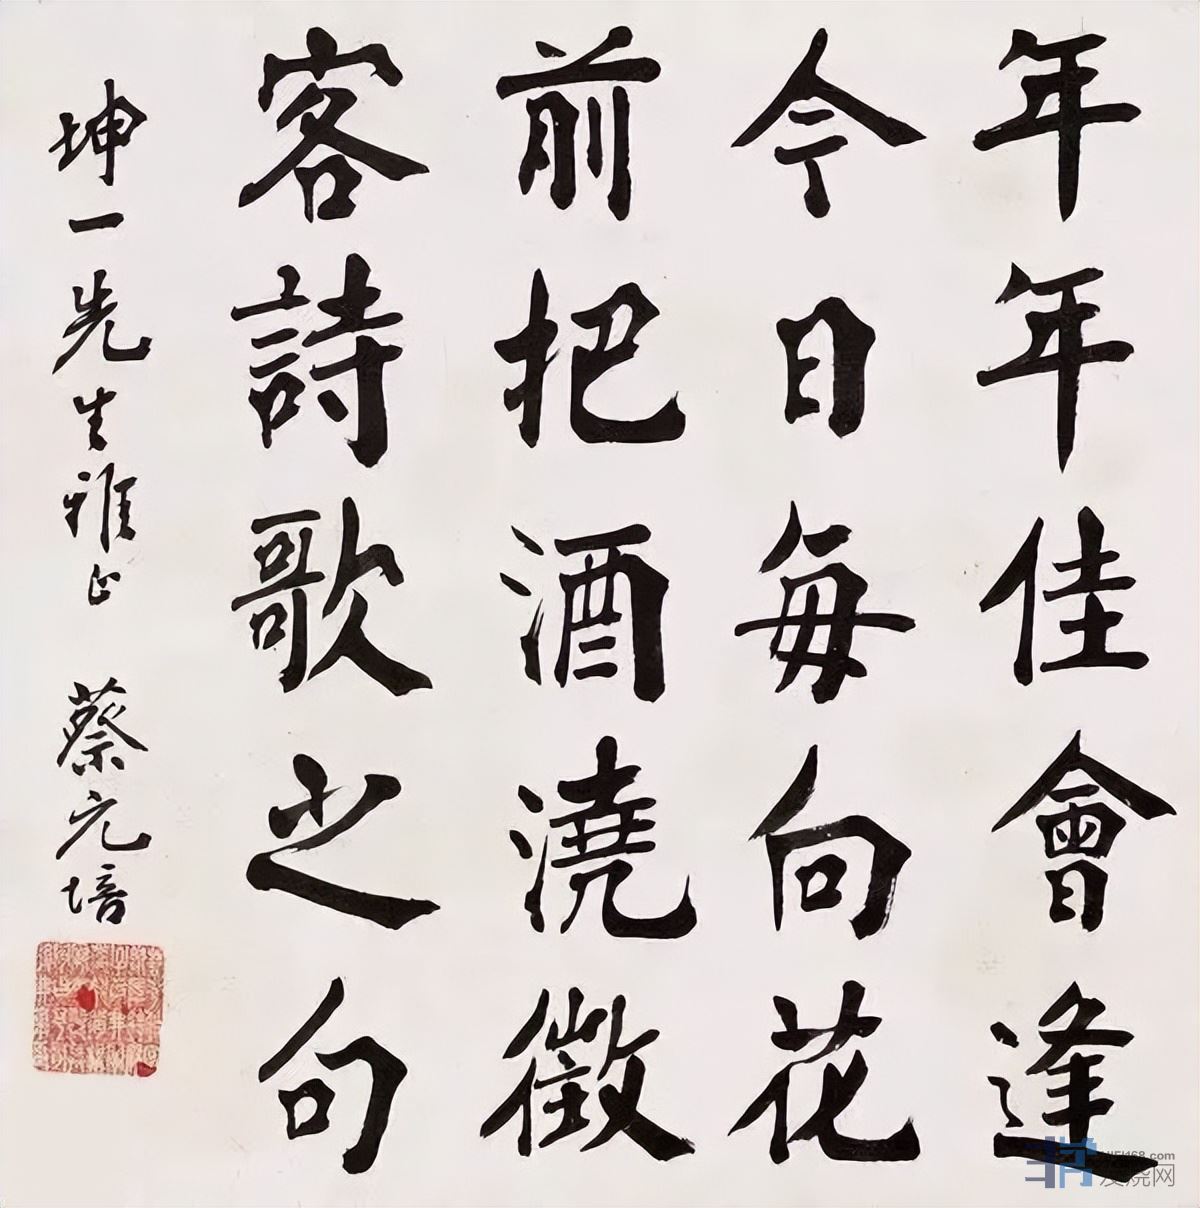 年年佳會逢
今日每向花
前把酒澆徵
客詩歌之句
坤一先生雅正 蔡元培
HIFI168.com
发烧网